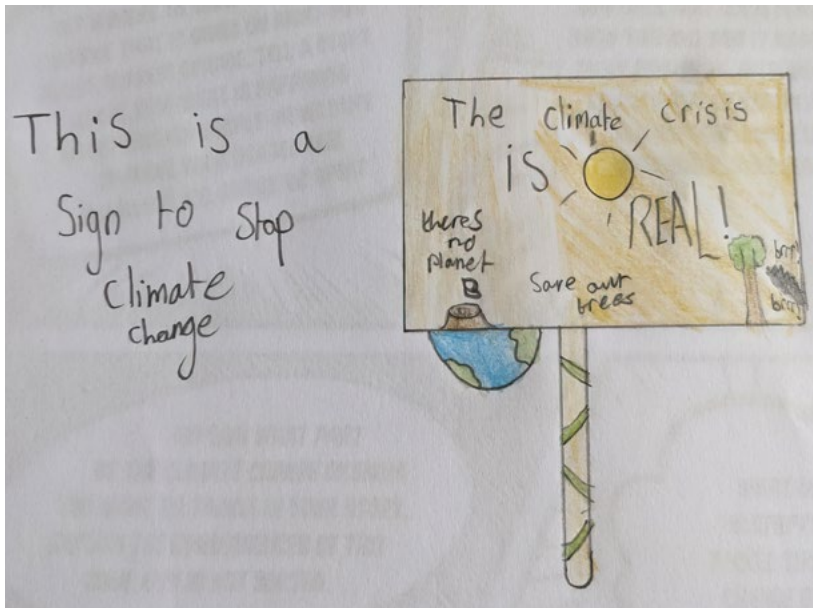 This is a
Sign to Stop
Climate
change
The climate crisis
is
REAL!
theres
no
planet
B
Save our
trees
brrr!